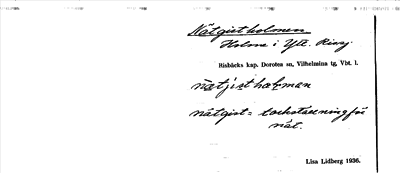 Nätgistholmen
Holme i Ytt. Rissj.
Risbäcks kap. Dorotea sn, Vilhelmina tg, Vbt. l.
nätgist = torkställning för
nät.
Lisa Lidberg 1936.